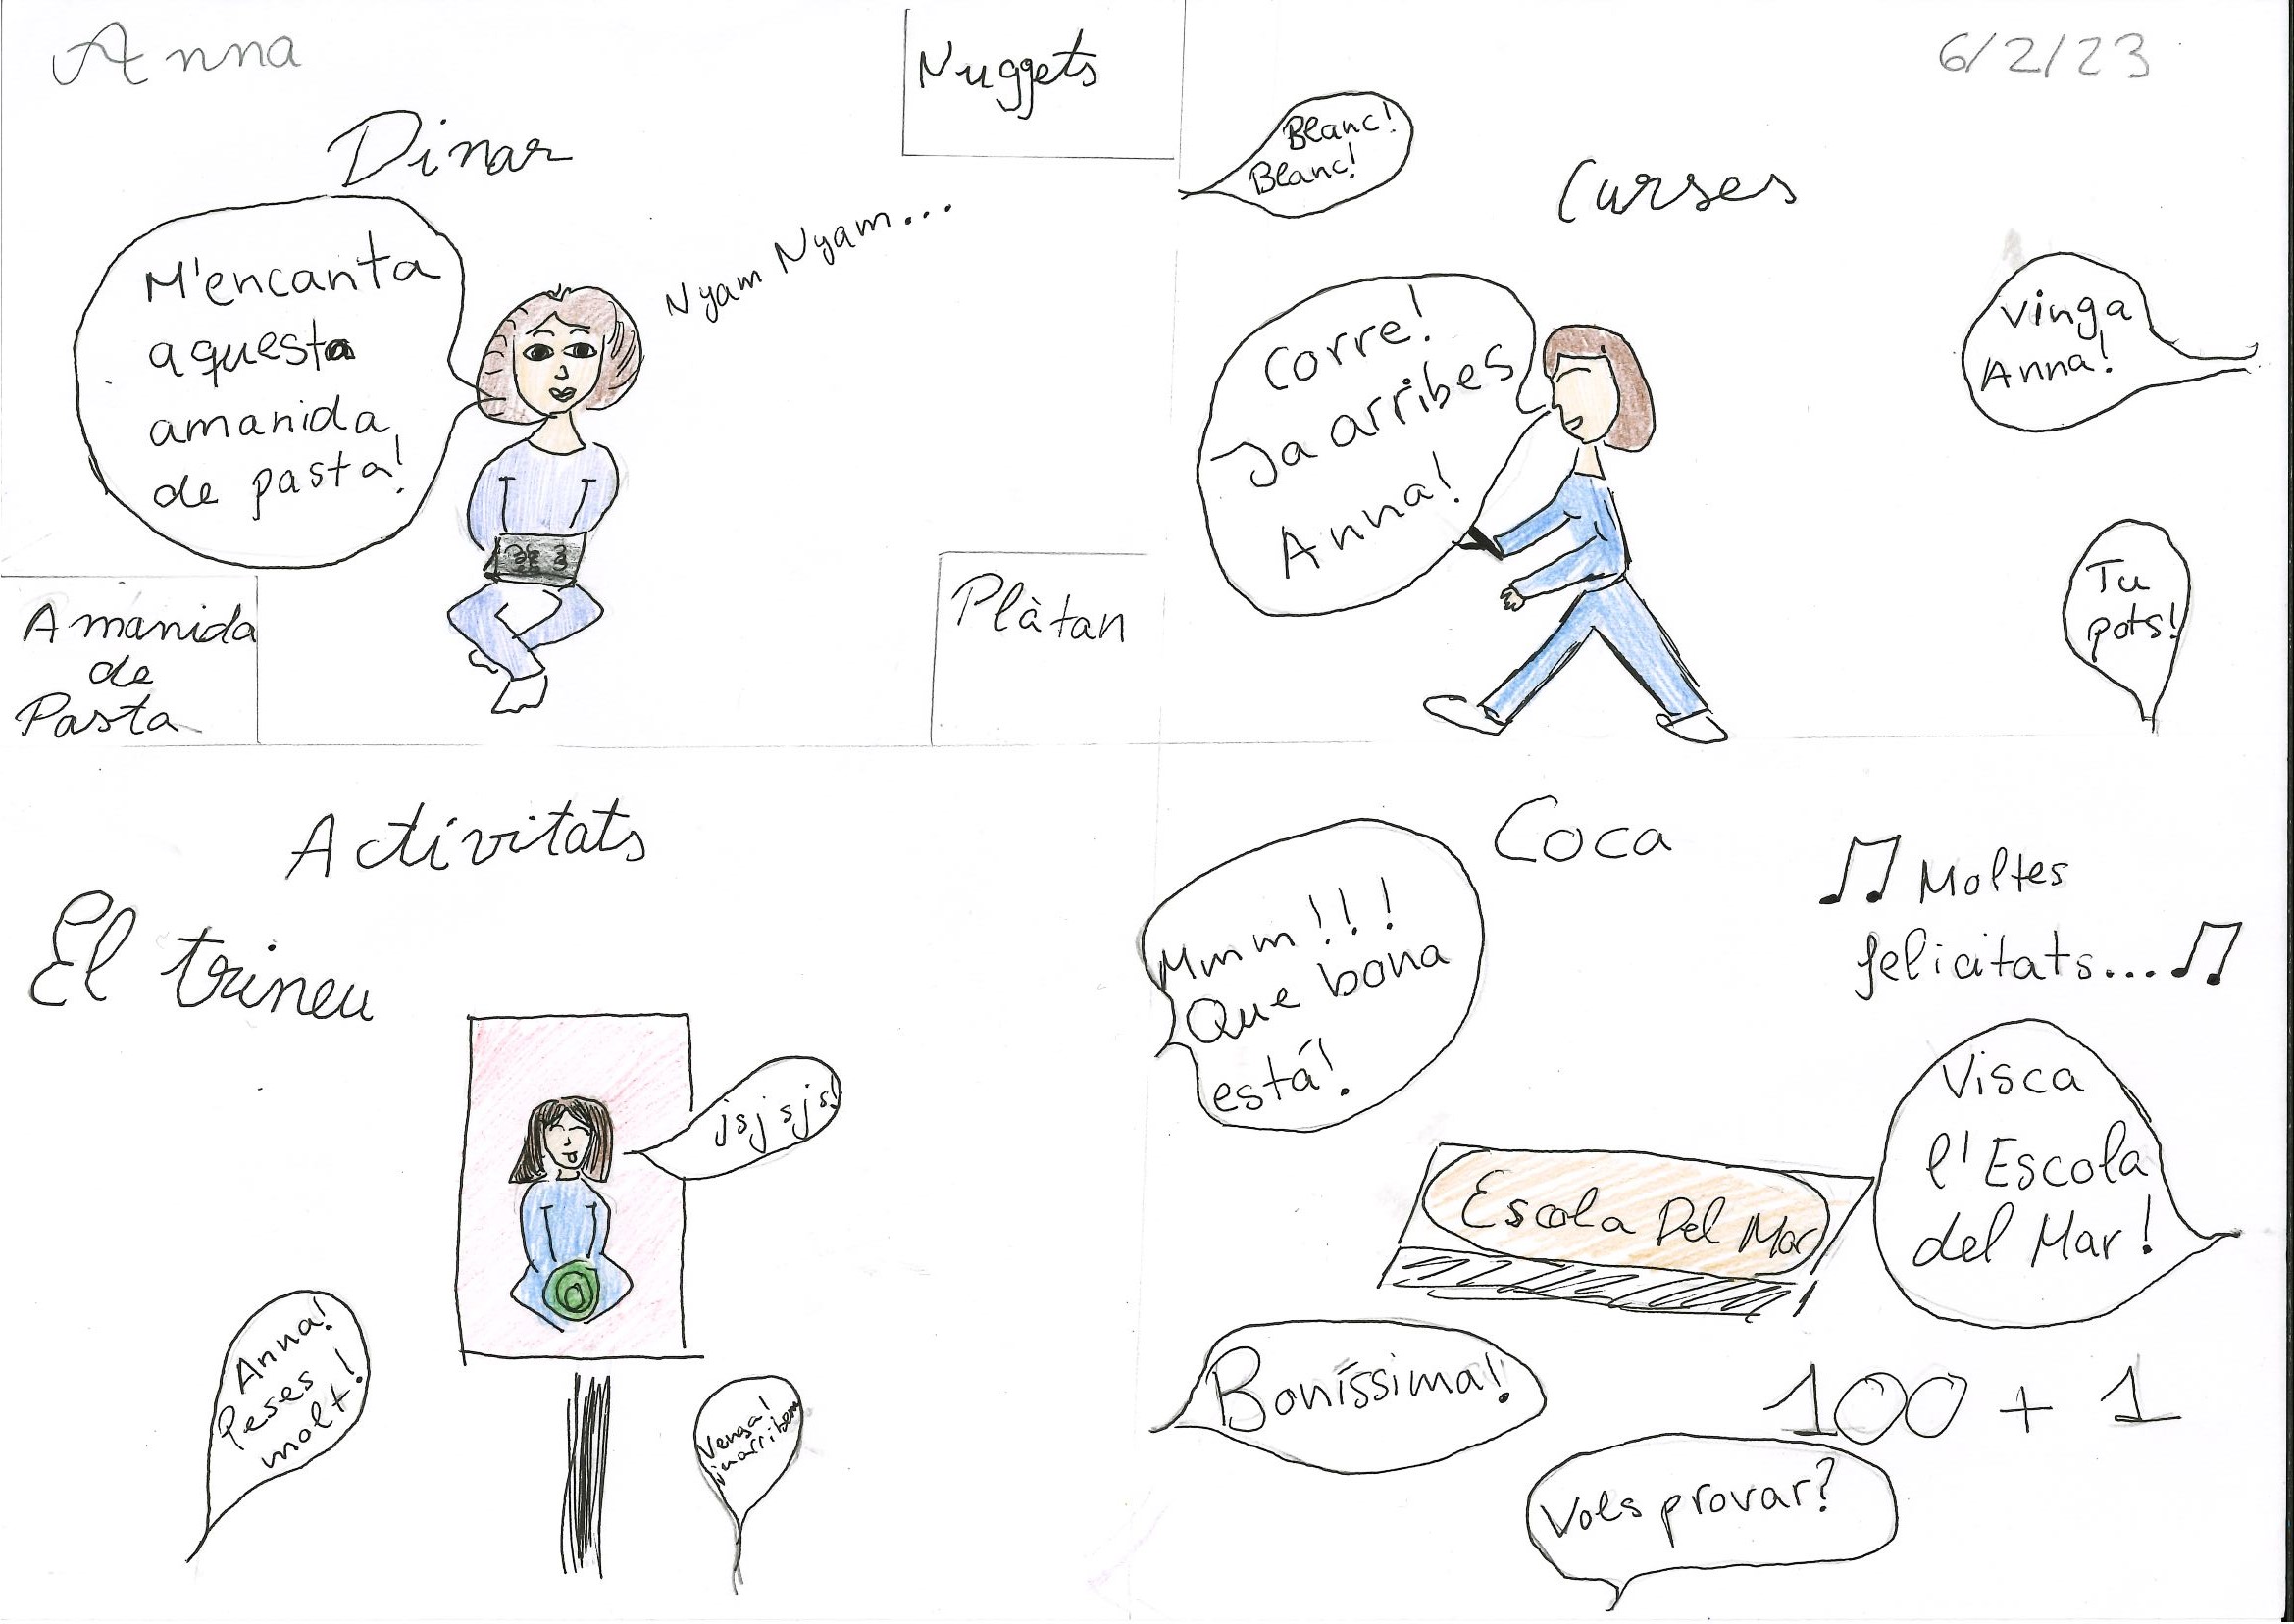 Anna
6/2/23
Dinar
Nuggets
M'encanta
aquesta
amanida
de pasta!
Nyam Nyam...
Amanida
de
Pasta
Plàtan
Curses
Blanc!
Blanc!
Corre!
Ja arribes
Anna!
Vinga
Anna!
Tu
pots!
Activitats
El trineu
jsjsjs!
Anna!
Peses
molt!
Venga!
ja arribem
Coca
Mmm!!!
Que bona
está!
♫ Moltes
felicitats...♫
Visca
l'Escola
del Mar!
Escola Del Mar
Boníssima!
100 + 1
Vols provar?